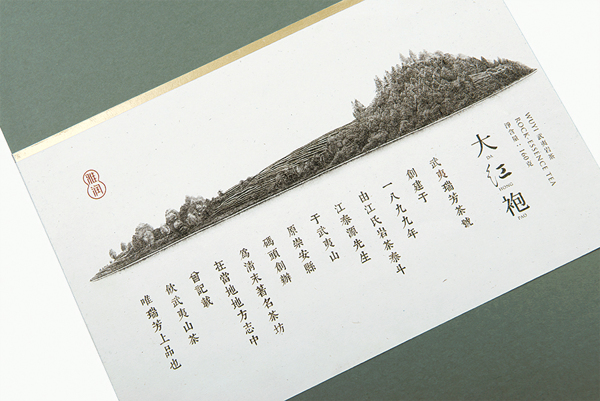 WUYI 武夷岩茶
ROCK-ESENCE TEA
淨含量：160克
大红袍
DA HONG PAO
武夷瑞芳茶號
創建于
一八九九年
由江氏岩茶泰斗
江泰源先生
于武夷山
原崇安縣
碼頭創辦
爲清末著名茶坊
在當地地方志中
曾記載
飲武夷山茶
唯瑞芳上品也